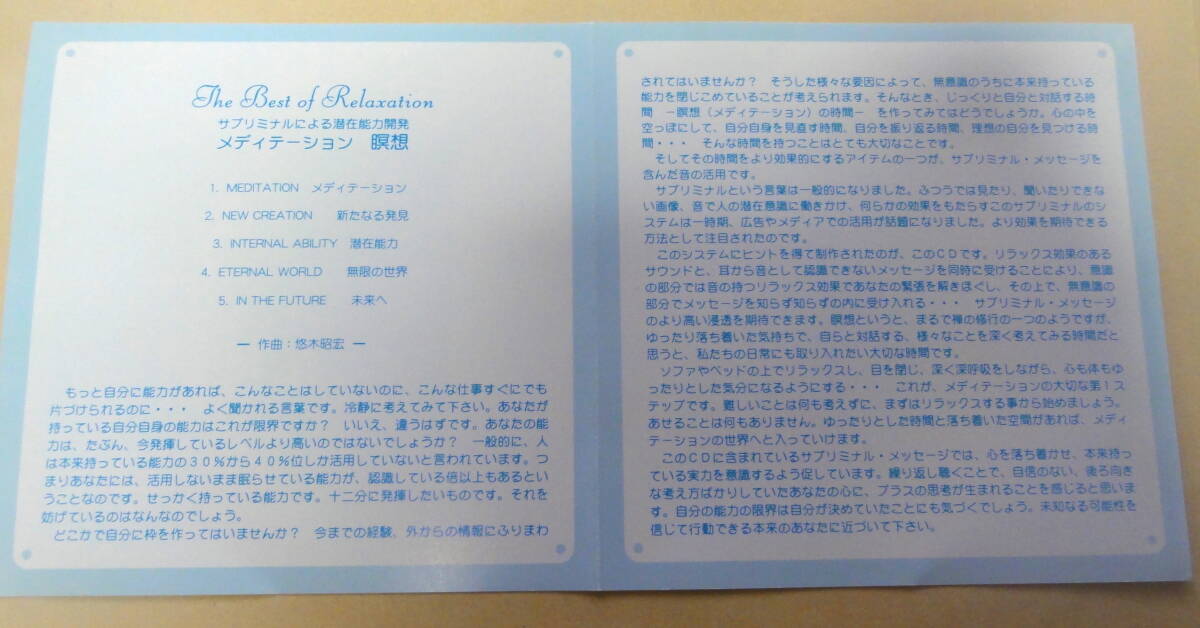 The Best of Relaxation
サブリミナルによる潜在能力開発
メディテーション　瞑想
1. MEDITATION　メディテーション
2. NEW CREATION　新たなる発見
3. INTERNAL ABILITY　潜在能力
4. ETERNAL WORLD　無限の世界
5. IN THE FUTURE　未来へ
ー 作曲：悠木昭宏 ー
　もっと自分に能力があれば、こんなことはしていないのに、こんな仕事すぐにでも
片づけられるのに・・・　よく聞かれる言葉です。冷静に考えてみて下さい。あなたが
持っている自分自身の能力はこれが限界ですか？　いいえ、違うはずです。あなたの能
力は、たぶん、今発揮しているレベルより高いのではないでしょうか？　一般的に、人
は本来持っている能力の３０％から４０％位しか活用していないと言われています。つ
まりあなたには、活用しないまま眠らせている能力が、認識している倍以上もあるとい
うことなのです。せっかく持っている能力です。十二分に発揮したいものです。それを
妨げているのはなんなのでしょう。
　どこかで自分に枠を作ってはいませんか？　今までの経験、外からの情報にふりまわ
されてはいませんか？　そうした様々な要因によって、無意識のうちに本来持っている
能力を閉じこめていることが考えられます。そんなとき、じっくりと自分と対話する時
間　ー瞑想（メディテーション）の時間ー　を作ってみてはどうでしょうか。心の中を
空っぽにして、自分自身を見直す時間、自分を振り返る時間、理想の自分を見つける時
間・・・　そんな時間を持つことはとても大切なことです。
　そしてその時間をより効果的にするアイテムの一つが、サブリミナル・メッセージを
含んだ音の活用です。
　サブリミナルという言葉は一般的になりました。ふつうでは見たり、聞いたりできな
い画像、音で人の潜在意識に働きかけ、何らかの効果をもたらすこのサブリミナルのシ
ステムは一時期、広告やメディアでの活用が話題になりました。より効果を期待できる
方法として注目されたのです。
　このシステムにヒントを得て制作されたのが、このＣＤです。リラックス効果のある
サウンドと、耳から音として認識できないメッセージを同時に受けることにより、意識
の部分では音の持つリラックス効果であなたの緊張を解きほぐし、その上で、無意識の
部分でメッセージを知らず知らずの内に受け入れる・・・　サブリミナル・メッセージ
のより高い浸透を期待できます。瞑想というと、まるで禅の修行の一つのようですが、
ゆったり落ち着いた気持ちで、自らと対話する、様々なことを深く考えてみる時間だと
思うと、私たちの日常にも取り入れたい大切な時間です。
　ソファやベッドの上でリラックスし、目を閉じ、深く深呼吸をしながら、心も体もゆ
ったりとした気分になるようにする・・・　これが、メディテーションの大切な第１ス
テップです。難しいことは何も考えずに、まずはリラックスする事から始めましょう。
あせることは何もありません。ゆったりとした時間と落ち着いた空間があれば、メディ
テーションの世界へと入っていけます。
　このＣＤに含まれているサブリミナル・メッセージでは、心を落ち着かせ、本来持っ
ている実力を意識するよう促しています。繰り返し聴くことで、自信のない、後ろ向き
な考え方ばかりしていたあなたの心に、プラスの思考が生まれることを感じると思いま
す。自分の能力の限界は自分が決めていたことにも気づくでしょう。未知なる可能性を
信じて行動できる本来のあなたに近づいて下さい。